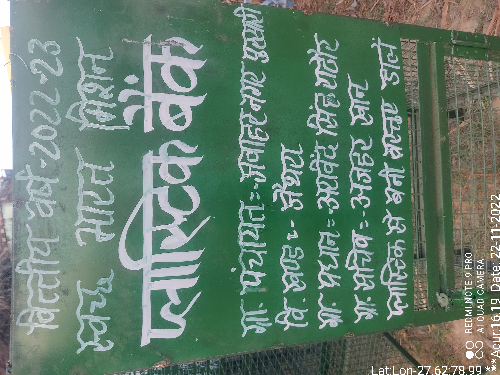 वित्तीय वर्ष-2022-23
स्वच्छ भारत मिशन
प्लास्टिक बैंक
ग्रा० पंचायत=जवाहर नगर
वि. खण्ड =
ग्रा० प्रधान=अरविंद सिंह राठौर
ग्रा० सचिव=अजहर खान
प्लास्टिक से बनी वस्तुए डाले
REDMI NOTE 9 PRO
AI QUAD CAMERA
Lat Lon-27.62:78.99
***Acur:16.19 Date: 22-11-2022